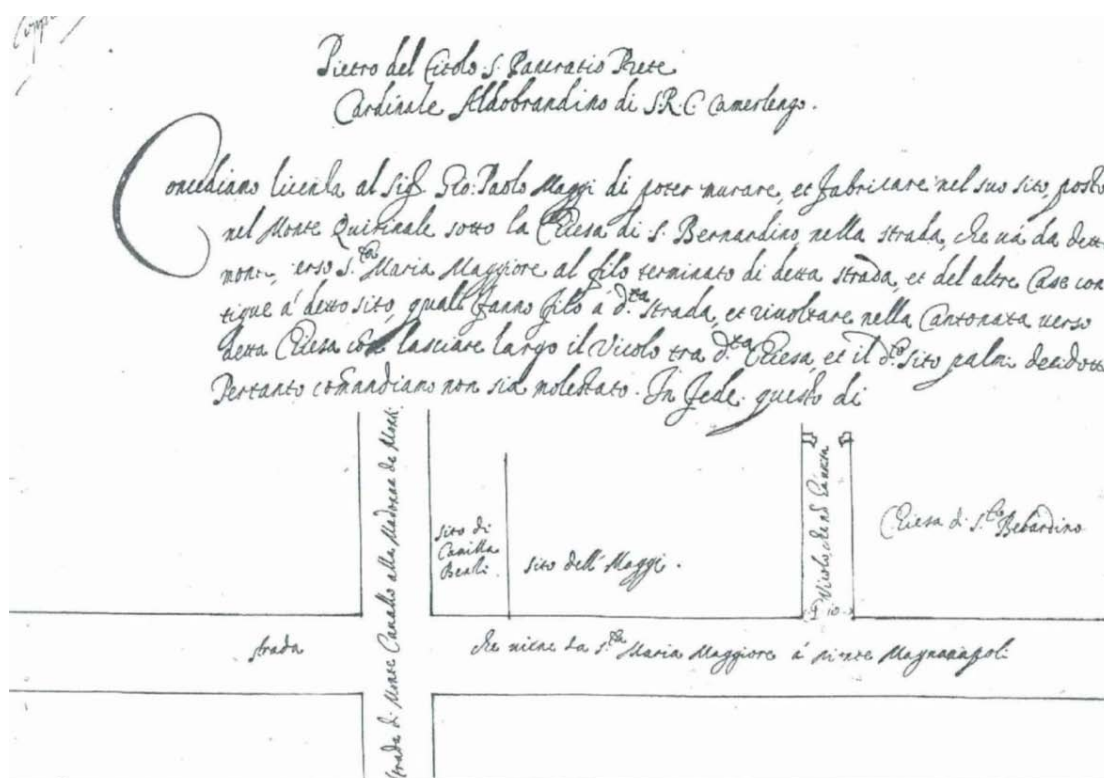 Pietro del titolo S. Pancratio Prete
Cardinale Aldobrandino di S.R.C. Camerlengo.
Concediamo licenza al Sig.r Gio: Paolo Maggi di poter murare, et fabricare nel suo sito, posto
nel Monte Quirinale sotto la Chiesa di S. Bernardino, nella strada, che uà da detto
monte erso S.ta Maria Maggiore al filo terminato di detta strada, et del altre Case con
tigue á detto sito, quali fanno filo á d.ta strada, et riuoltare nella Cantonata uerso
detta Chiesa con lasciare largo il Vicolo tra d.ta Chiesa, et il d.o sito palmi
Pertanto comandiamo non sia molestato. In fede questo di
strada di Monte Cauallo alla Madonna de Monti
sito di
Camilla
sito dell' Maggi.
Vicolo, che
Chiesa di S.to
10
strada
che uiene da S.ta Maria Maggiore á Magnanapoli